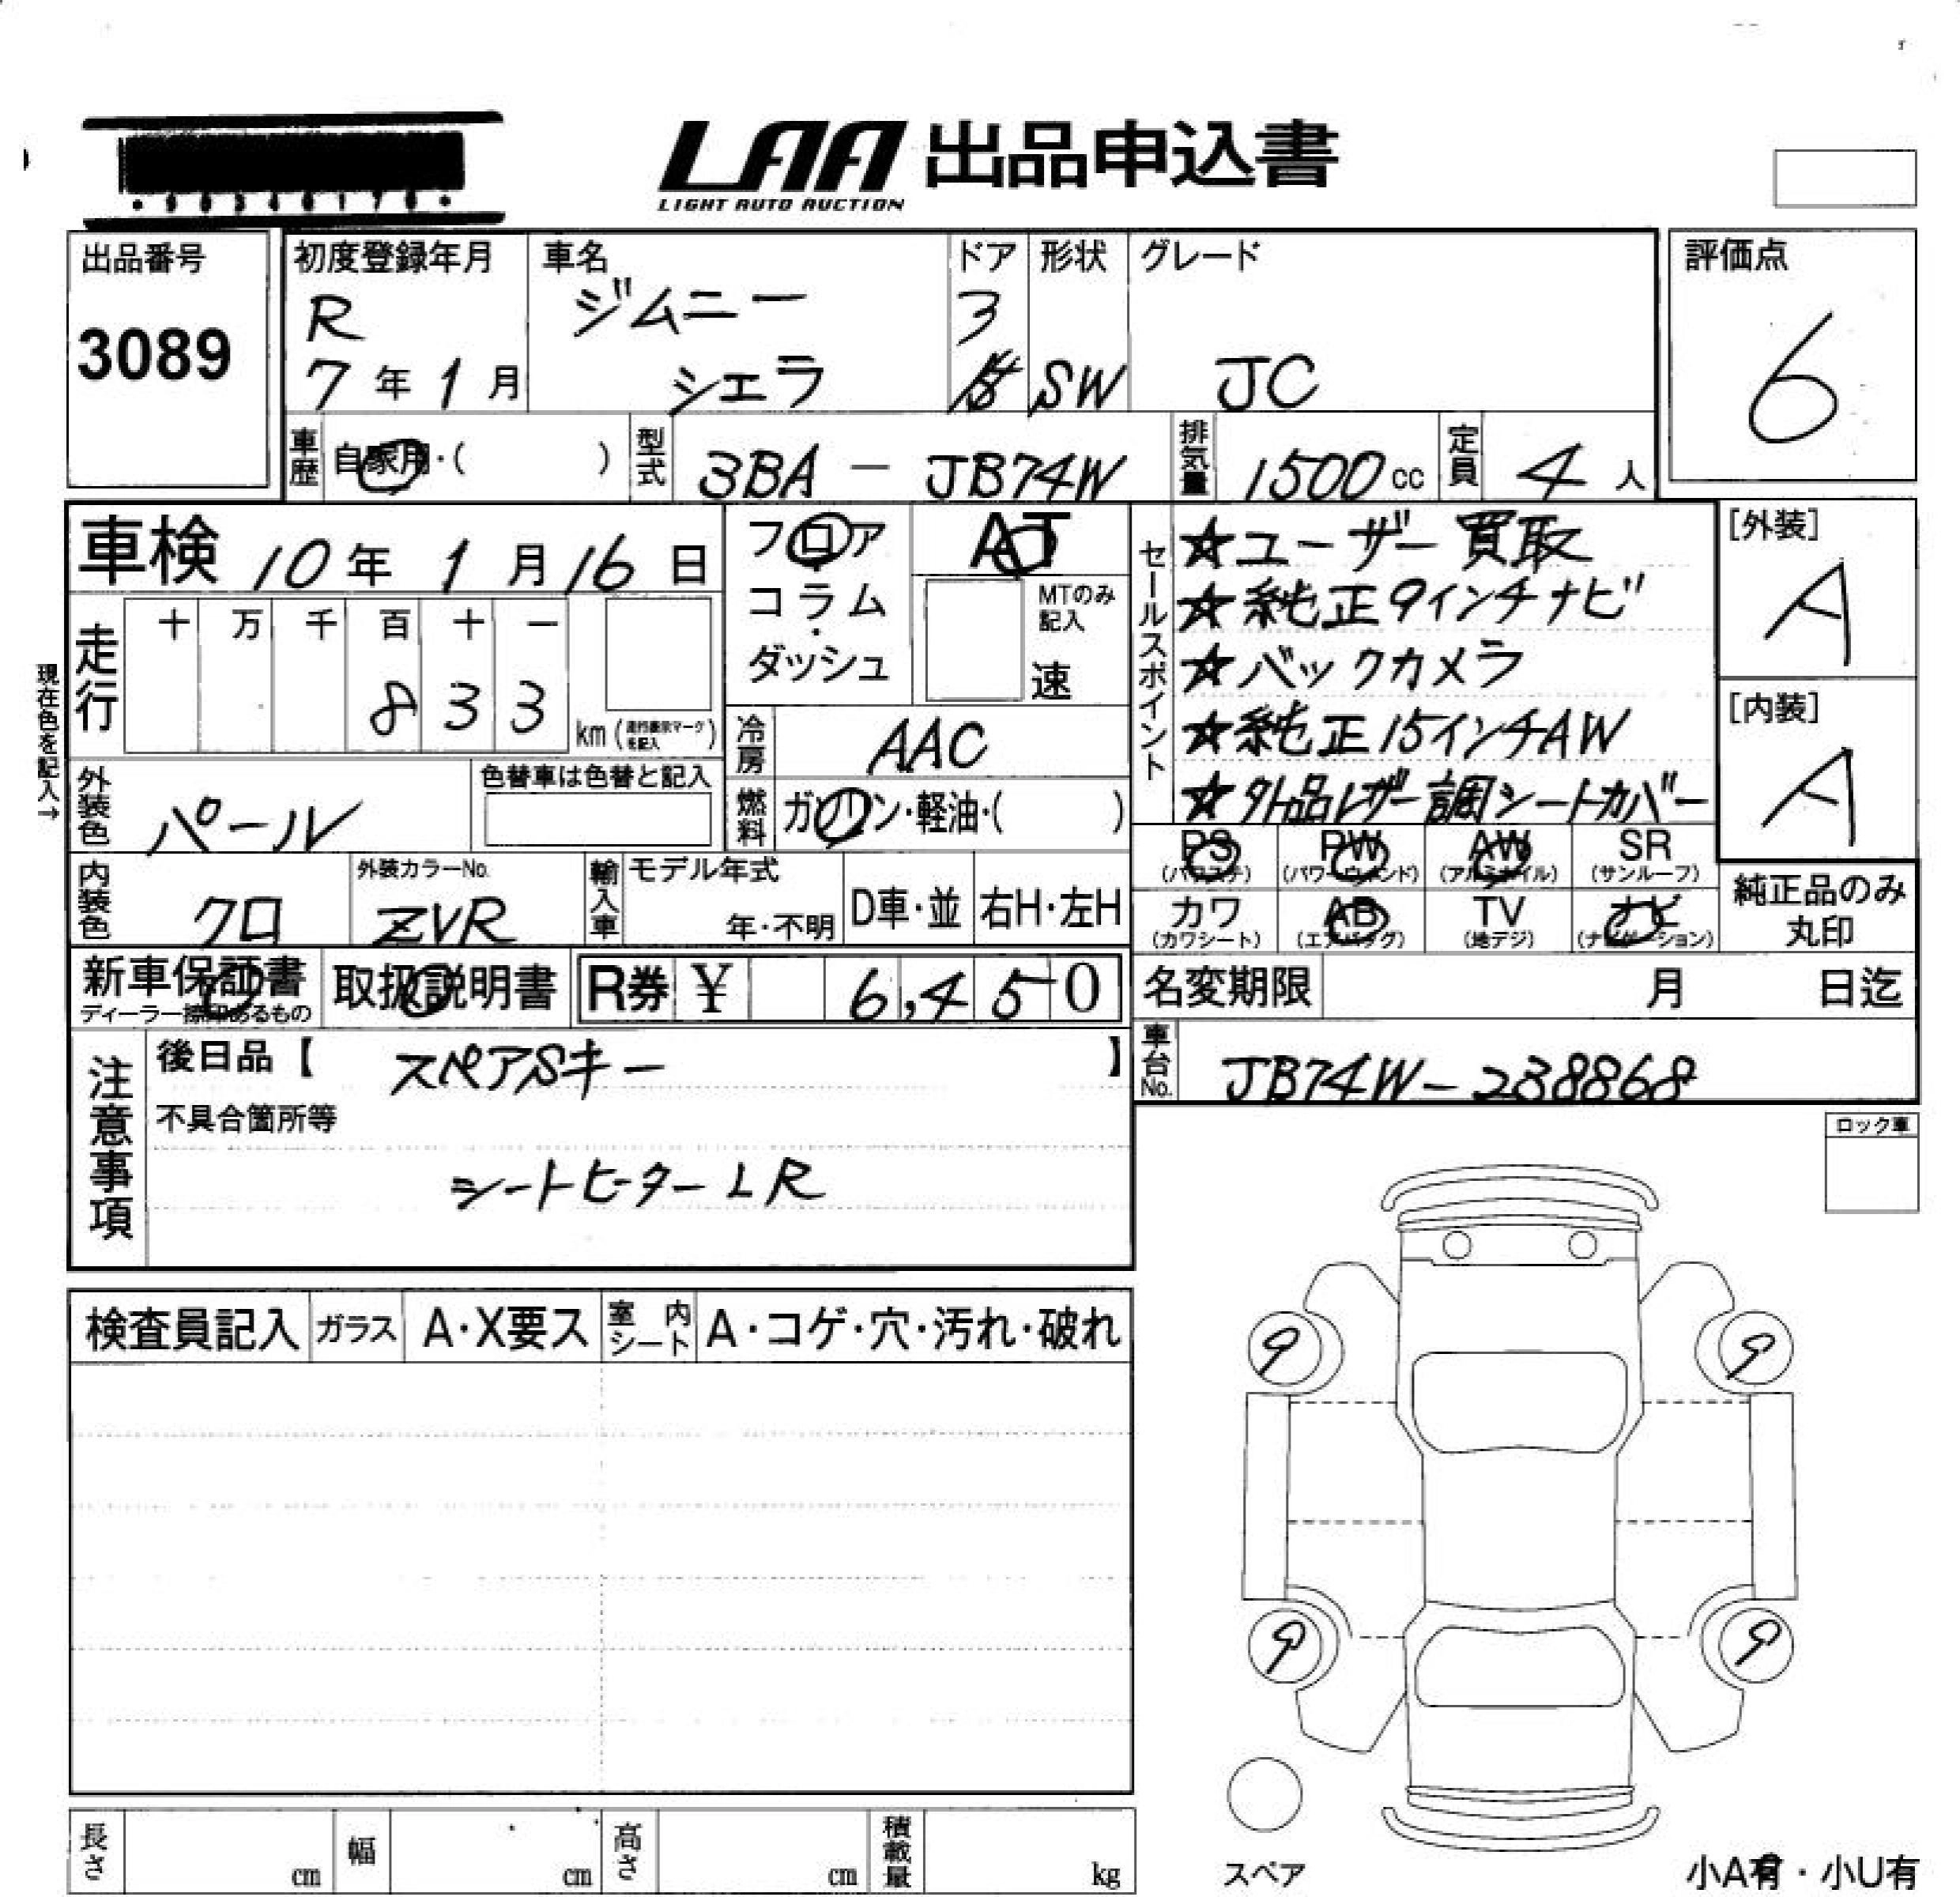 LAA 出品申込書
LIGHT AUTO AUCTION
出品番号
3089
初度登録年月
R
7年1月
車名
ジムニー
シエラ
ドア
3
形状
SW
グレード
JC
評価点
6
車歴 自家用・( )
型式 3BA - JB74W
排気量 1500cc
定員 4人
車検 10年1月16日
フロア
コラム
・
ダッシュ
AT
MTのみ
記入
速
セールスポイント
☆ユーザー買取
☆純正9インチナビ
☆バックカメラ
☆純正15インチAW
☆外品レザー調シートカバー
[外装]
A
[内装]
A
現在色を記入→
走行
十 万 千 百 十 一
8 3 3
km (走行表示マークを記入)
冷房 AAC
燃料 ガソリン・軽油・( )
外装色 パール
色替車は色替と記入
内装色 クロ
外装カラーNo.
ZVR
輸入車
モデル年式
年・不明
D車・並
右H・左H
PS
(パワステ)
PW
(パワーウィンド)
AW
(アルミホイル)
SR
(サンルーフ)
カワ
(カワシート)
AB
(エアバッグ)
TV
(地デジ)
ナビ
(ナビゲーション)
純正品のみ
丸印
新車保証書
ディーラー捺印あるもの
取扱説明書
R券 ¥ 6,450
名変期限 月 日迄
車台No. JB74W-238868
注意事項
後日品【 スペアSキー 】
不具合箇所等
シートヒーターLR
ロック車
検査員記入
ガラス
A・X要ス
室内シート
A・コゲ・穴・汚れ・破れ
9 9
9 9
スペア
小A有・小U有
長さ cm
幅 cm
高さ cm
積載量 kg